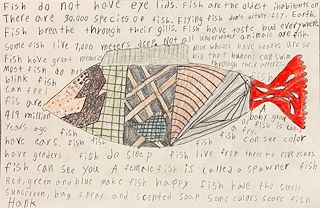 Fish do not have eye lids. Fish are the oldest inhabitants on
There are 30,000 species of fish. Flying fish don't actually fly. Earth.
Fish breathe through their gills, Fish have taste bud everywhere
some fish live 7,000 meters deep Not all underwater animals are fish.
Fish have great blue whales have hearts are so
Most fish do not big that humans can swim
blink fish through their
can feel
fis are a baby group
419 million of fish is
years ago fish fish fish fry
have ears, fish fish fish can see color
have genders fish do sleep fish live from three to five years
fish can see you A female fish is called a spawner fish
Red, green and blue make fish happy fish hate the smell
sunscreen, bug spray and scented soap some colors scare fish
Hank